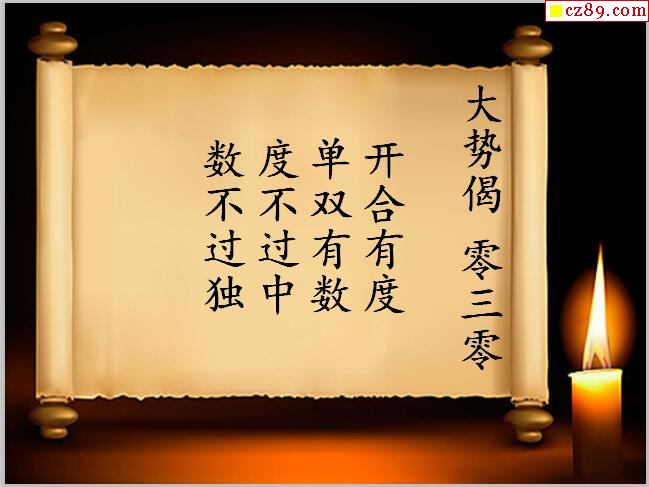 cz89.com
大势偈 零三零
开合有度
单双有数
度不过中
数不过独